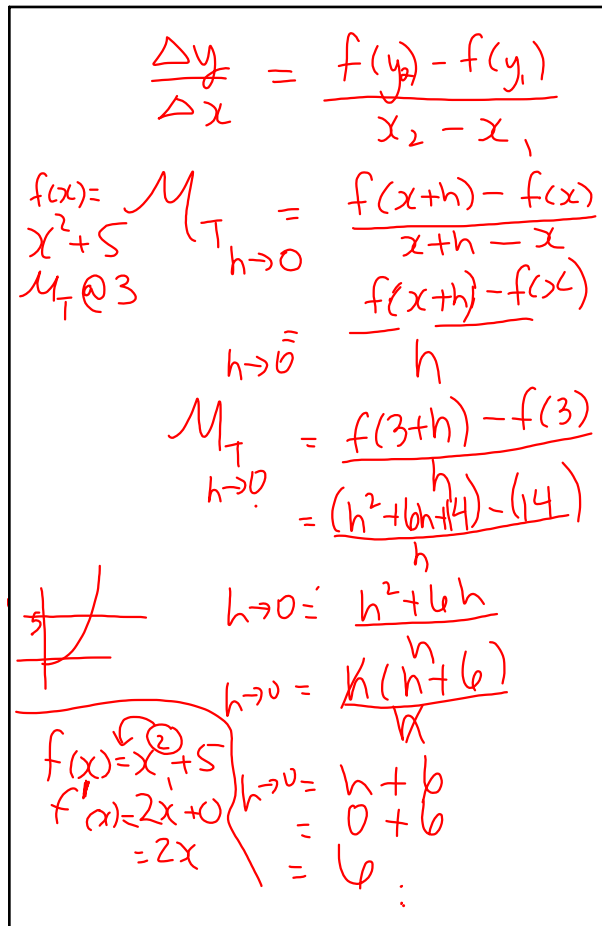 Δy/Δx = (f(y₂) - f(y₁))/(x₂ - x₁)
f(x)=
x²+5
M_T @ 3
M_T h→0 = (f(x+h) - f(x))/(x+h - x)
h→0 = (f(x+h) - f(x))/h
M_T h→0 = (f(3+h) - f(3))/h
= ((h²+6h+14) - (14))/h
h→0 = (h²+6h)/h
h→0 = h(h+6)/h
h→0 = h+6
= 0+6
= 6
5
f(x)=x²+5
f'(x)=2x¹+0
=2x